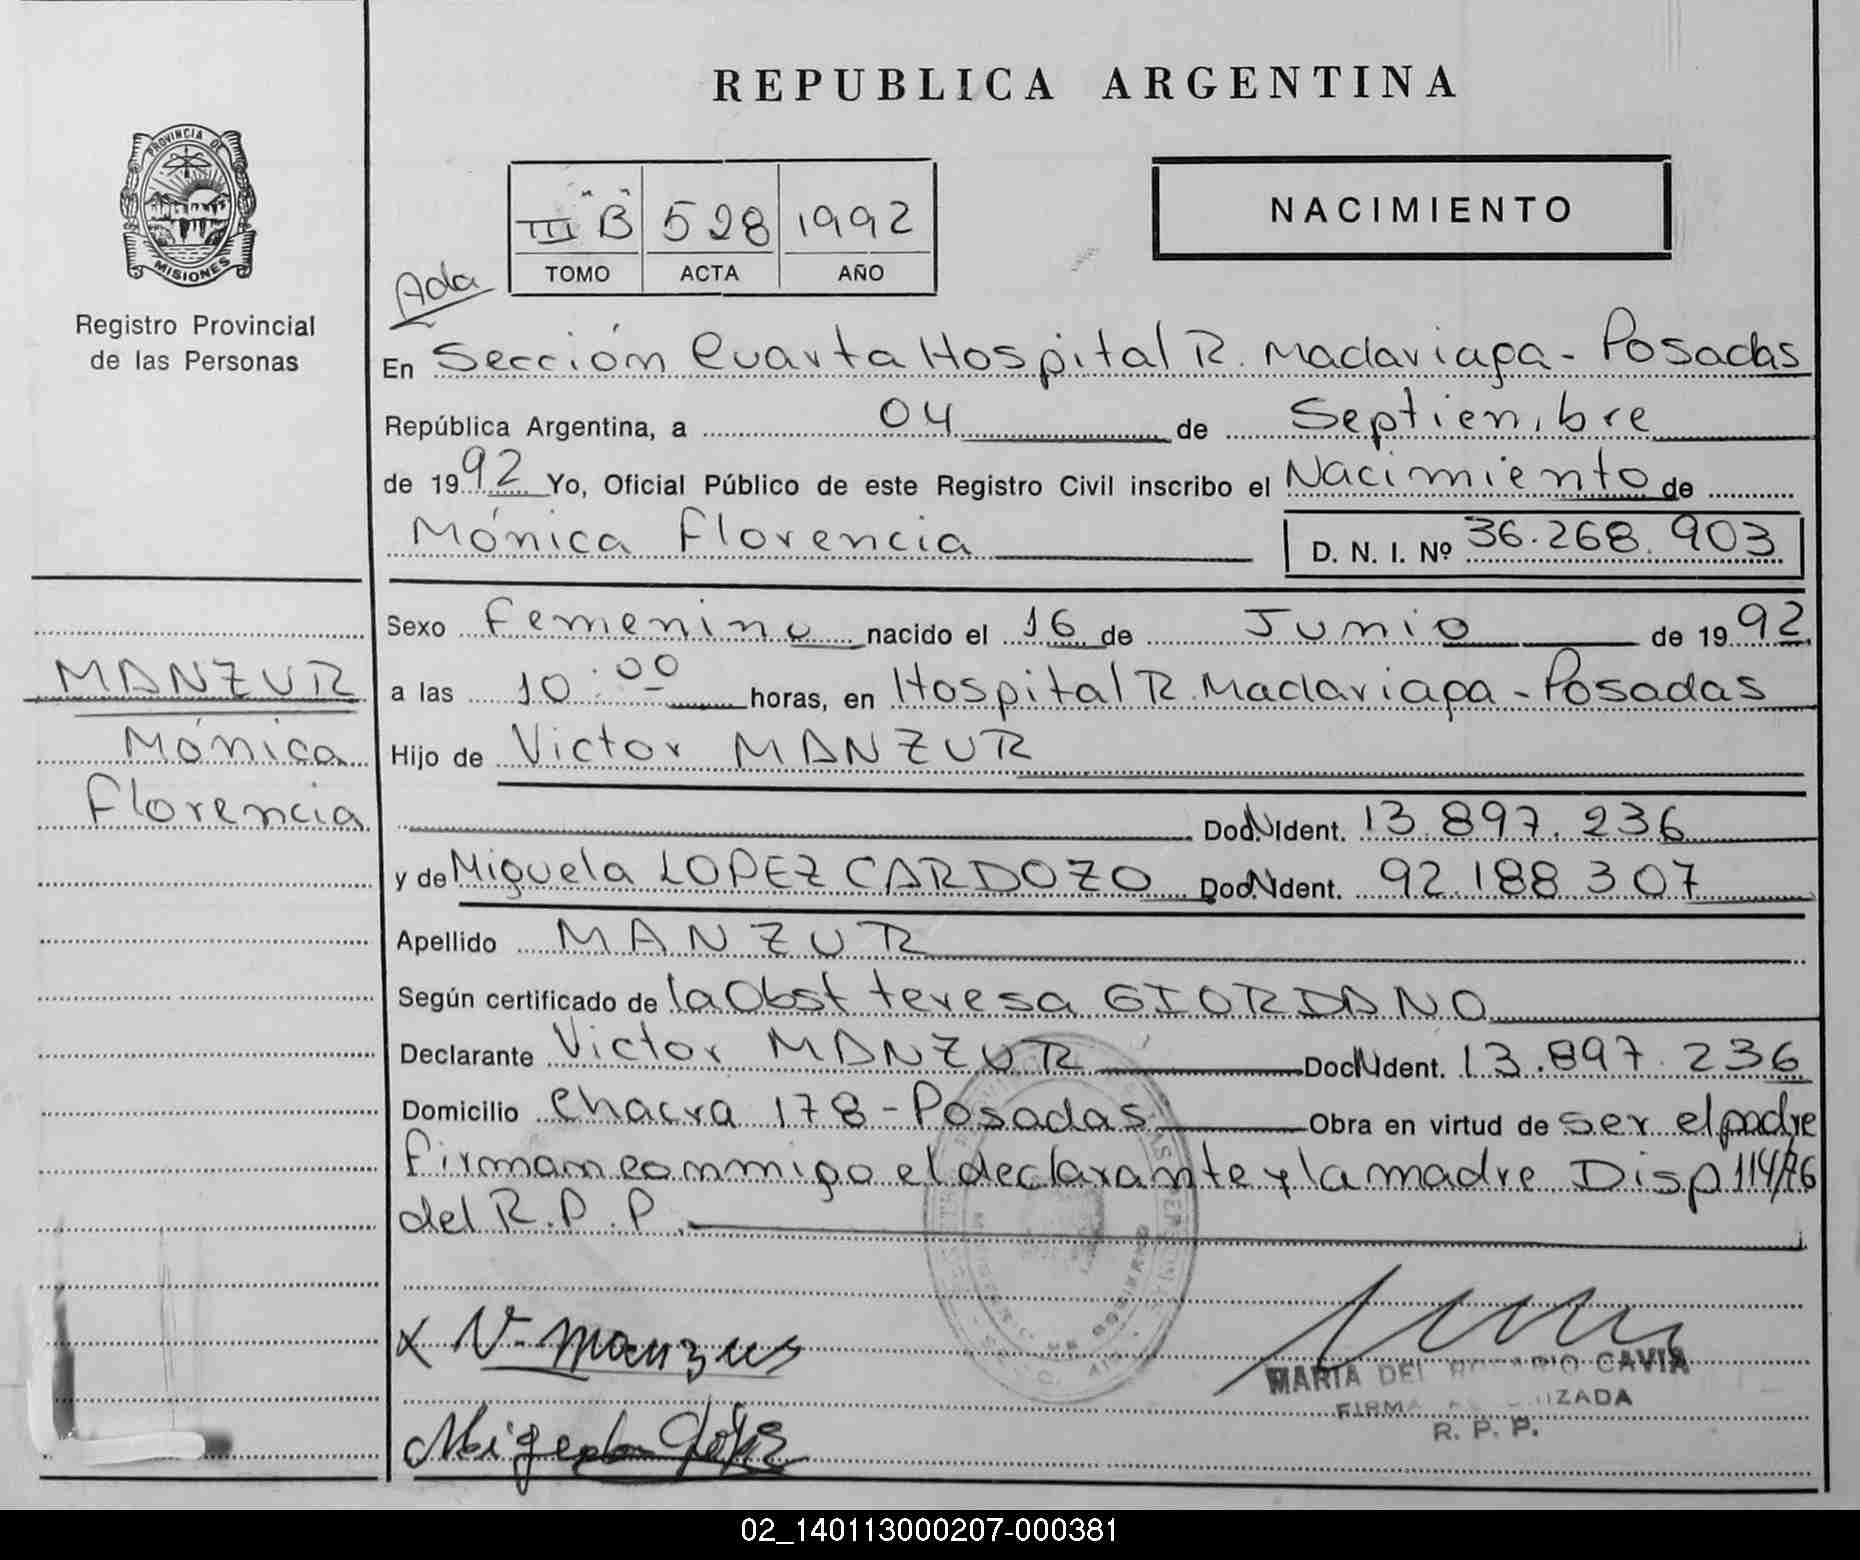 REPUBLICA ARGENTINA
PROVINCIA DE
MISIONES
Registro Provincial
de las Personas
III "B" 528 1992
TOMO ACTA AÑO
NACIMIENTO
Ada
En Sección Cuarta Hospital R. Madariaga - Posadas
República Argentina, a 04 de Septiembre
de 1992 Yo, Oficial Público de este Registro Civil inscribo el Nacimiento de
Mónica Florencia D. N. I. Nº 36.268.903
Sexo Femenino nacido el 16 de Junio de 1992
a las 10:00 horas, en Hospital R. Madariaga - Posadas
Hijo de Victor MANZUR
Doc.N.Ident. 13.897.236
y de Miguela LOPEZ CARDOZO Doc.N.Ident. 92.188.307
Apellido MANZUR
Según certificado de la Obst teresa GIORDANO
Declarante Victor MANZUR Doc.N.Ident. 13.897.236
Domicilio Chacra 178 - Posadas Obra en virtud de ser el padre
Firman conmigo el declarante y la madre Disp 114/76
del R.P.P.
MANZUR
Mónica
Florencia
X V. Manzur
Miguela López
MARIA DEL ROSARIO CAVIA
FIRMA AUTORIZADA
R. P. P.
02_140113000207-000381